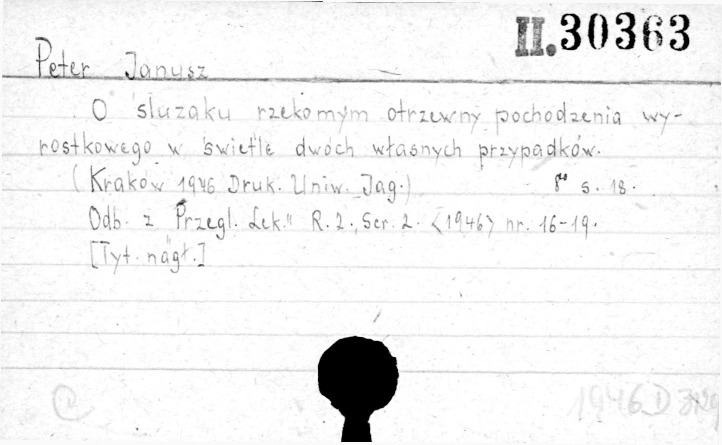 II. 30363
Peter Janusz
O śluzaku rzekomym otrzewny pochodzenia wy-
rostkowego w świetle dwóch własnych przypadków.
(Kraków 1946 Druk. Uniw. Jag.) 8° s. 18.
Odb. z "Przegl. Lek." R. 2., Ser. 2. <1946> nr. 16-19.
[Tyt. nagł.]
C
1946 D